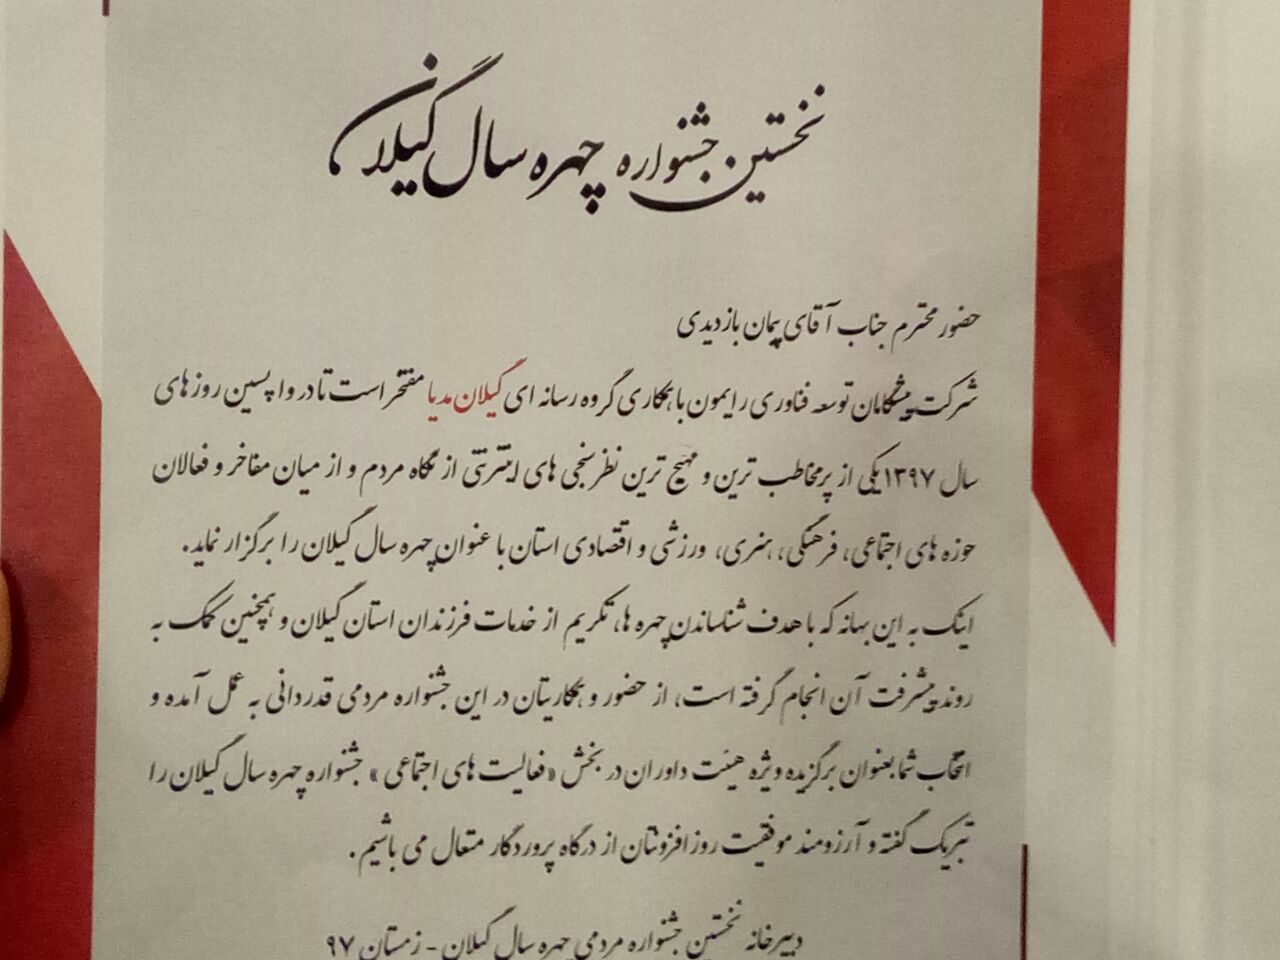 نخستین جشنواره چهره سال گیلان
حضور محترم جناب آقای پیمان بازدیدی
شرکت پیشگامان توسعه فناوری رایمون با همکاری گروه رسانه ای گیلان مدیا مفتخر است تا در واپسین روزهای
سال ۱۳۹۷ یکی از پرمخاطب ترین و مهیج ترین نظرسنجی های اینترنتی از نگاه مردم و از میان مفاخر و فعالان
حوزه های اجتماعی، فرهنگی، هنری، ورزشی و اقتصادی استان با عنوان چهره سال گیلان را برگزار نماید.
اینک به این بهانه که با هدف شناساندن چهره ها، تکریم از خدمات فرزندان استان گیلان و همچنین کمک به
روند پیشرفت آن انجام گرفته است، از حضور و همکاریتان در این جشنواره مردمی قدردانی به عمل آمده و
انتخاب شما بعنوان برگزیده ویژه هیئت داوران در بخش «فعالیت های اجتماعی» جشنواره چهره سال گیلان را
تبریک گفته و آرزومند موفقیت روزافزونتان از درگاه پروردگار متعال می باشیم.
دبیرخانه نخستین جشنواره مردمی چهره سال گیلان - زمستان ۹۷